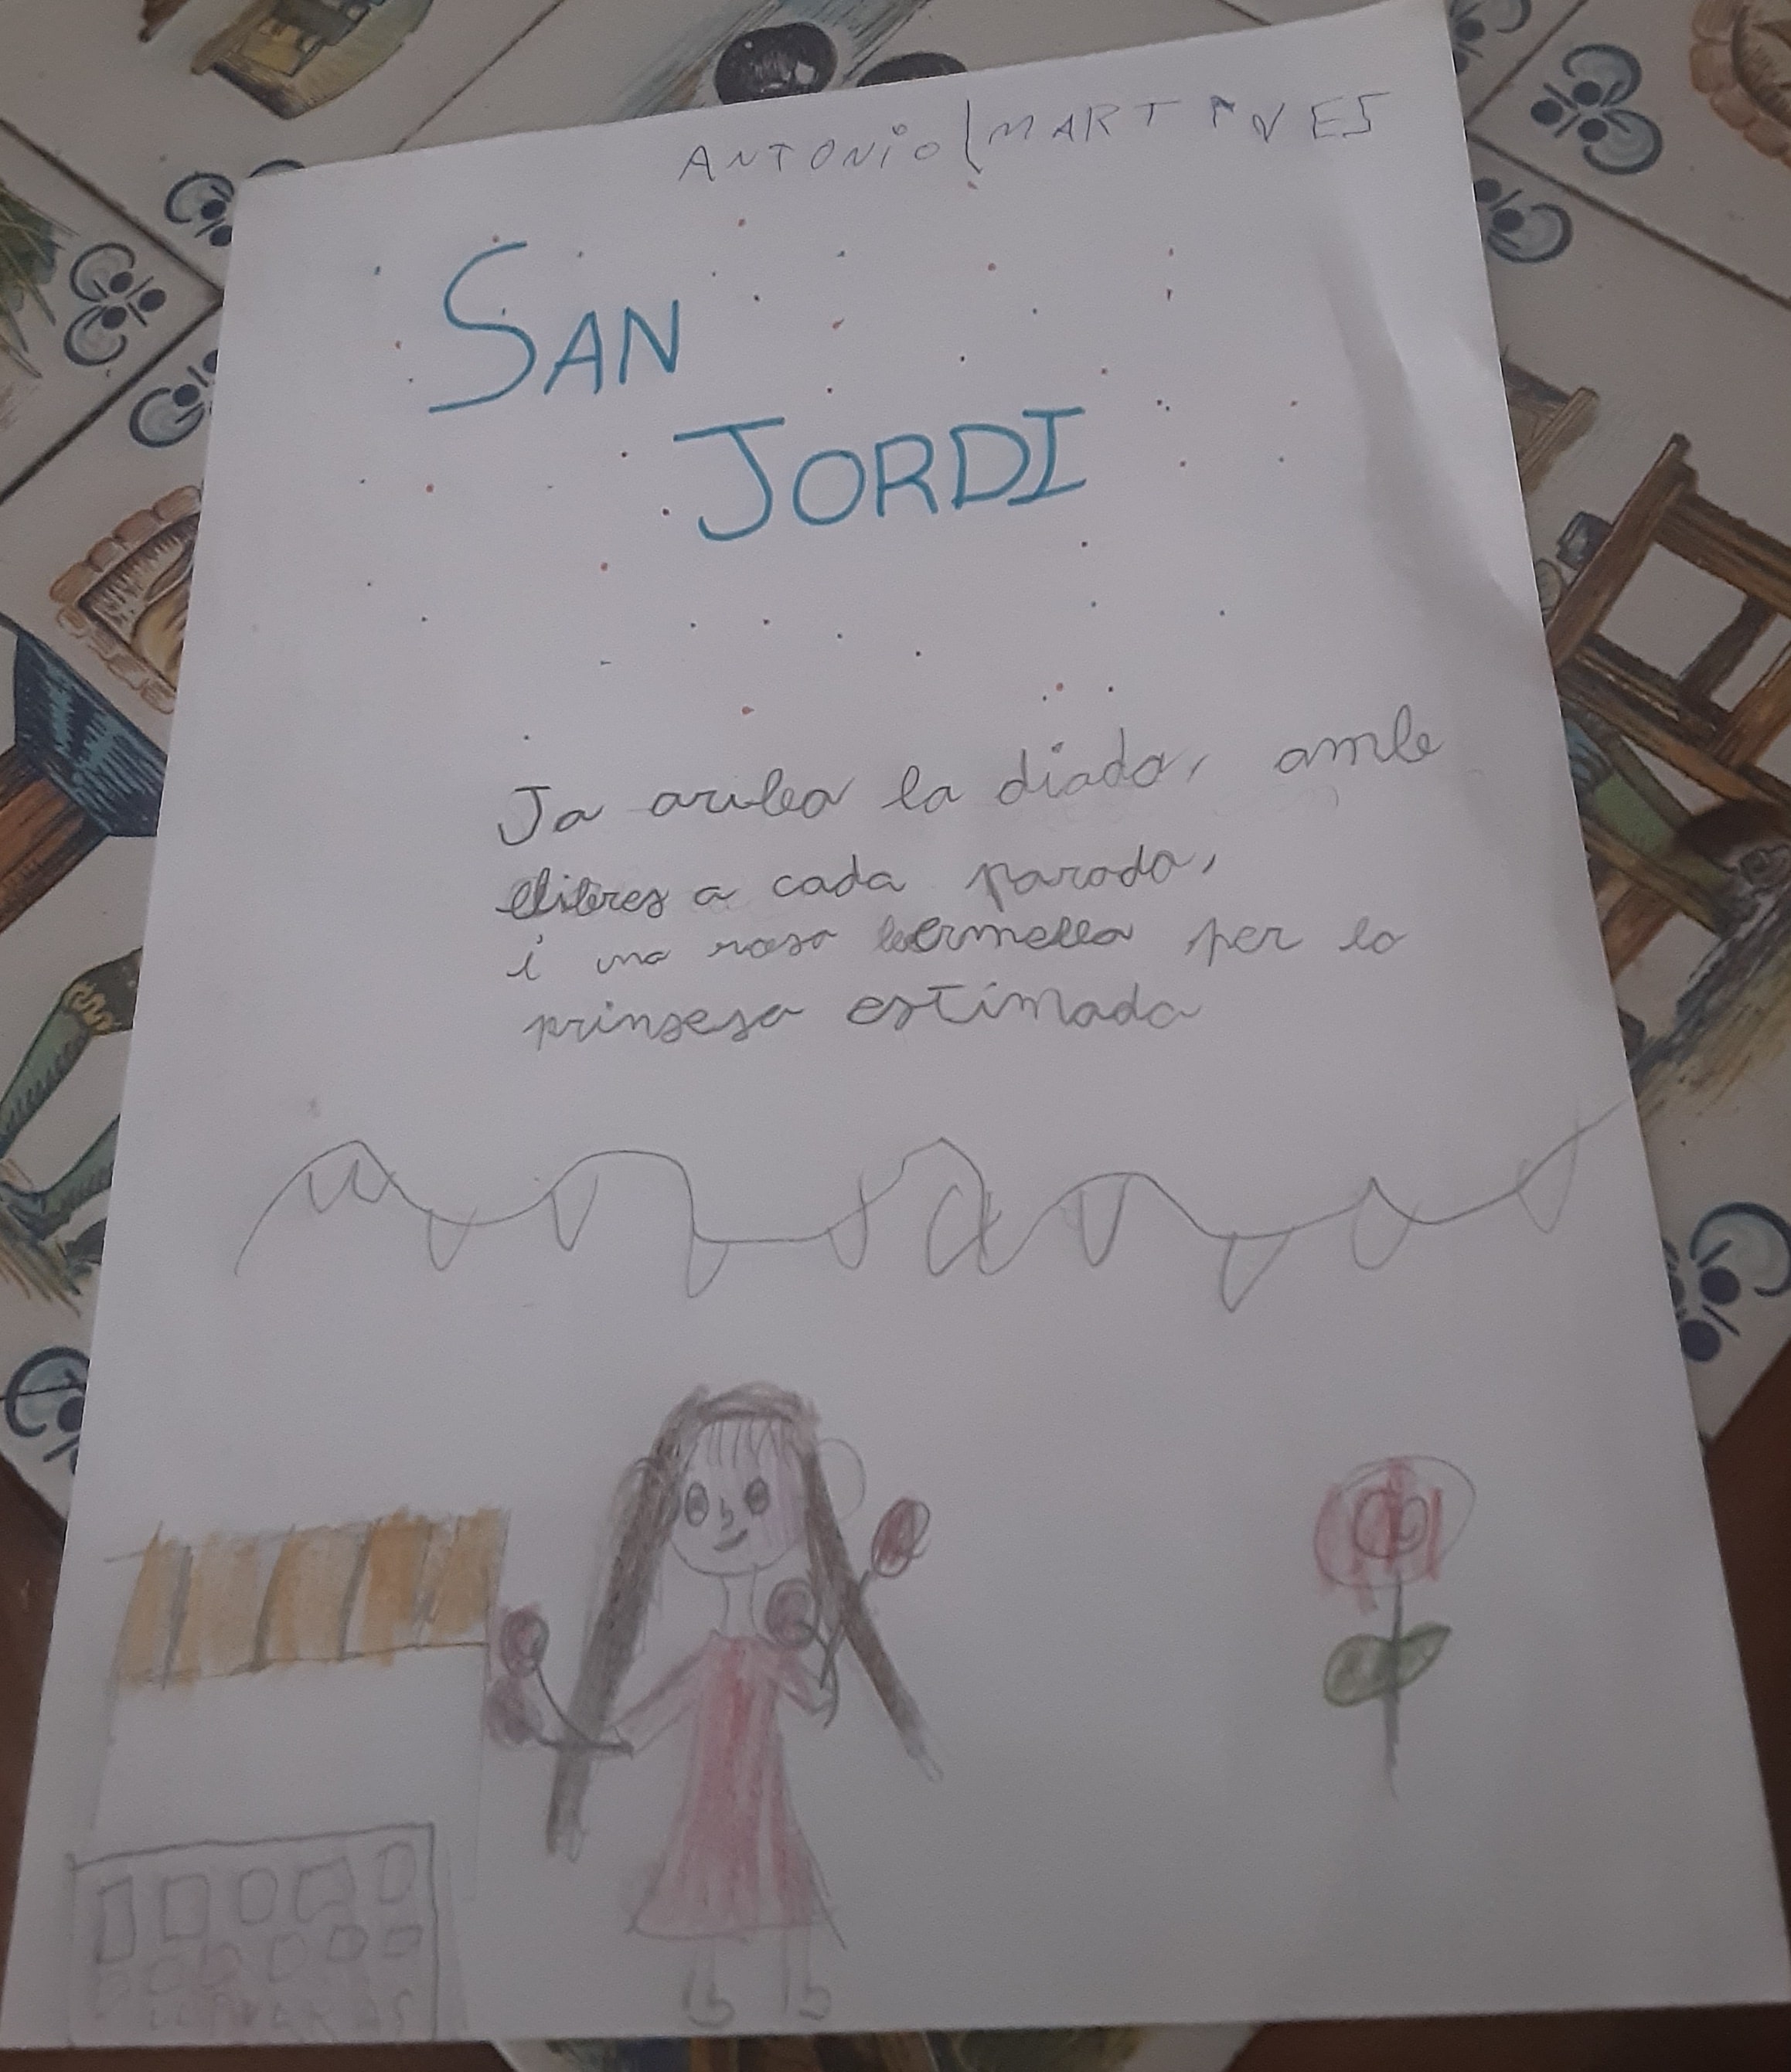 ANTONIO MARTINES
SAN
JORDI
Ja ariba la diada, amb
llibres a cada parada,
i una rosa bermella per la
prinsesa estimada